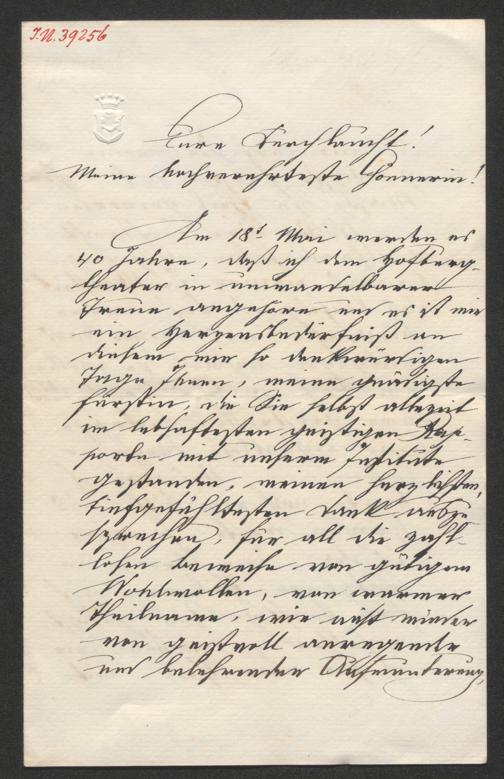 I.N. 39256
Eure Durchlaucht!
Meine hochverehrteste Gönnerin!
Am 18t Mai werden es
40 Jahre, daß ich dem Hofburg-
theater in unwandelbarer
Treue angehöre und es ist mir
ein Herzensbedürfniß an
diesem mir so denkwürdigen
Tage Ihnen, meine gnädigste
Fürstin, die Sie selbst allezeit
im lebhaftesten geistigen Rap-
porte mit unserm Institute
gestanden, meinen herzlichsten,
tiefgefühltesten Dank auszu
sprechen, für all die zahl-
losen Beweise von gütigem
Wohlwollen, von warmer
Theilname, wie nicht minder
von geistvoll anregender
und belehrender Aufmunterung,